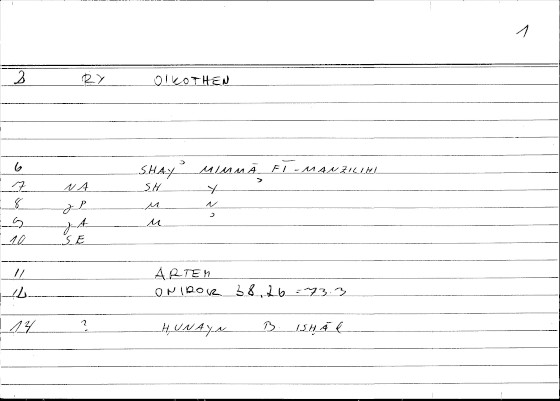 1
3 RY OIKOTHEN
6 SHAYʾ MIMMĀ FĪ-MANZILIHI
7 NA SH Y ʾ
8 gP M N
9 gA M ʾ
10 SE
11 ARTEM
12 ONIROK 38,26 = 73.3
14 ? ḤUNAYN B ISḤĀQ